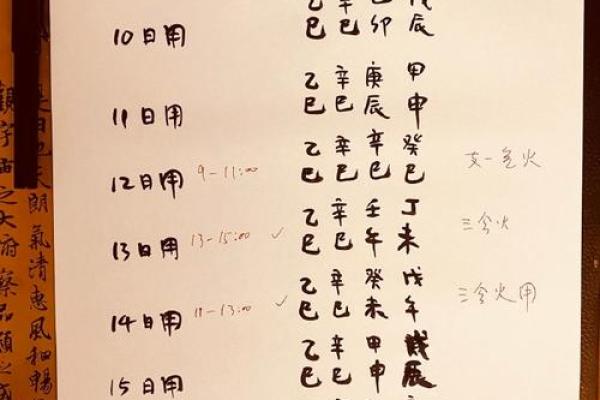 乙 辛 戊
10日用 巳 巳 卯 辰
乙 辛 庚 甲
11日用 巳 巳 辰 申
乙 辛 辛 癸
12日用 9-11:00 巳 巳 巳 巳 支一色火
乙 辛 壬 丁
13日用 13-15:00 ✓ 巳 巳 午 未 三会火
乙 辛 癸 戊
14日用 11-13:00 ✓ 巳 巳 未 午 三会火用
乙 辛 甲
15日用 巳 巳 申 辰
是日也天朗氣清惠風和暢
觀宇宙之大府察品類之盛